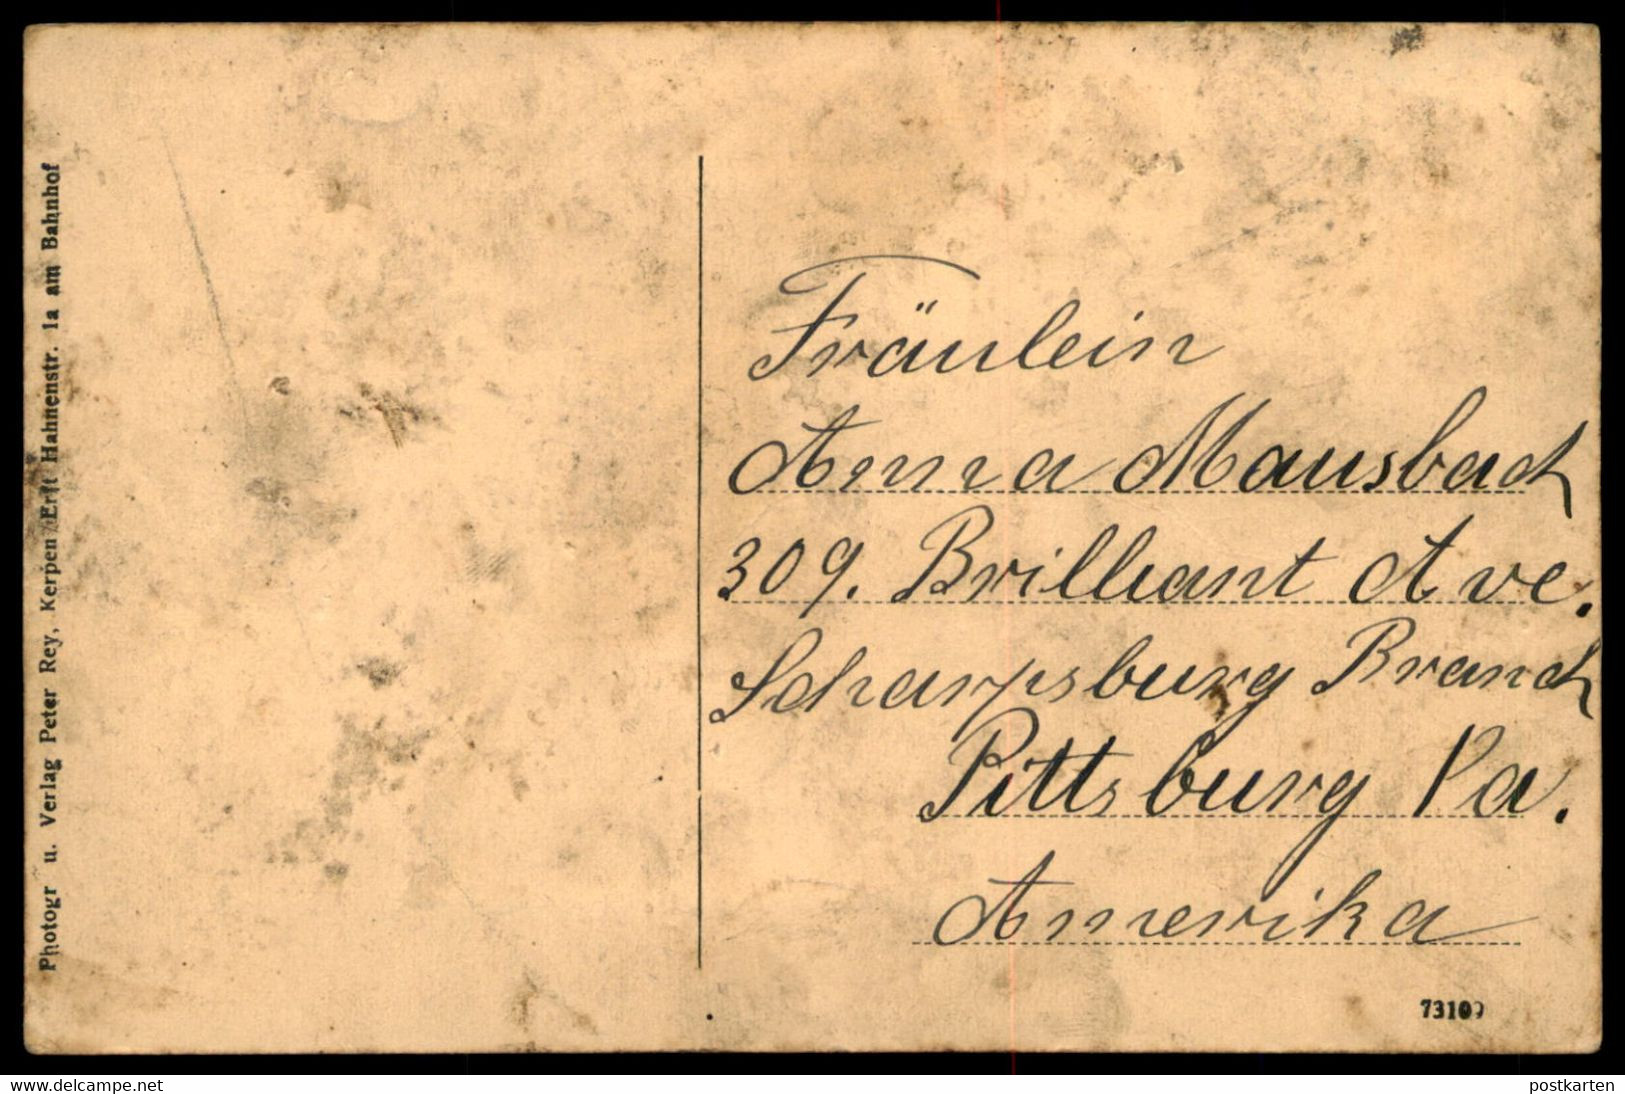 Photogr u. Verlag Peter Rey, Kerpen/Erft Hahnenstr. 1a am Bahnhof
Fräulein
Anna Mausbach
309. Brilliant Ave.
Scharpsburg Branch
Pittsburg Pa.
Amerika
73109
www.delcampe.net
postkarten